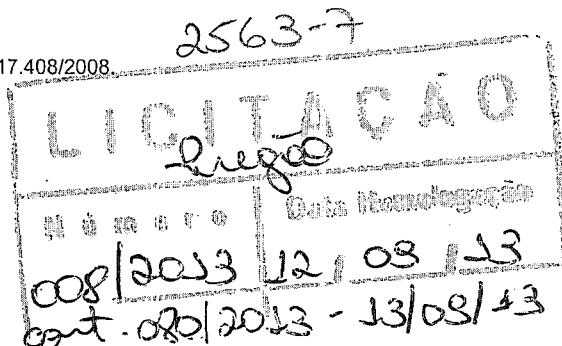 2563-7
17.408/2008.
LICITAÇÃO
Pregão
Número Data Homologação
008/2013 12/09/13
cont. 080/2013 - 13/09/13